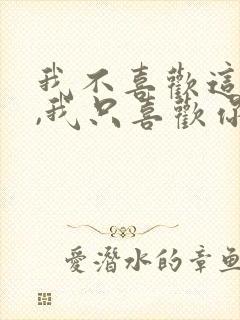 我不喜歡這
,我只喜歡你
愛潛水的章魚